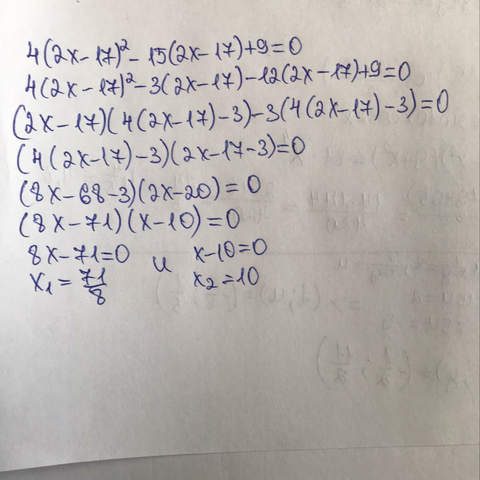 4(2x-17)²-15(2x-17)+9=0
4(2x-17)²-3(2x-17)-12(2x-17)+9=0
(2x-17)(4(2x-17)-3)-3(4(2x-17)-3)=0
(4(2x-17)-3)(2x-17-3)=0
(8x-68-3)(2x-20)=0
(8x-71)(x-10)=0
8x-71=0 и x-10=0
x₁=71/8 x₂=10